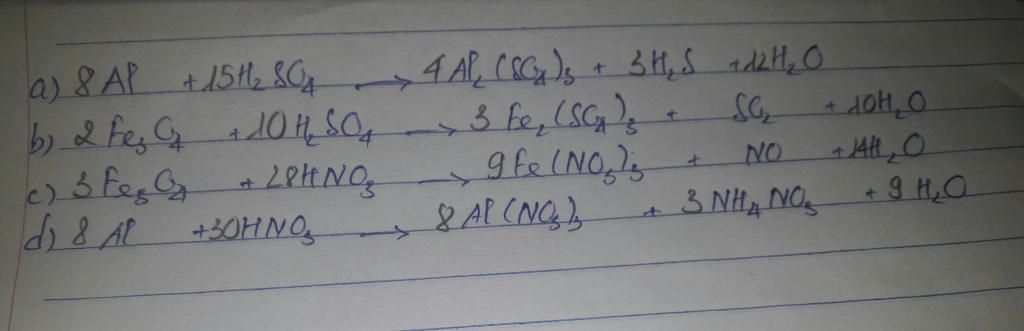 a) 8 Al + 15H₂SO₄ → 4 Al₂(SO₄)₃ + 3H₂S + 12H₂O
b) 2 Fe₃O₄ + 10 H₂SO₄ → 3 Fe₂(SO₄)₃ + SO₂ + 10H₂O
c) 3 Fe₃O₄ + 28HNO₃ → 9 Fe(NO₃)₃ + NO + 14H₂O
d) 8 Al + 30HNO₃ → 8 Al(NO₃)₃ + 3 NH₄NO₃ + 9 H₂O